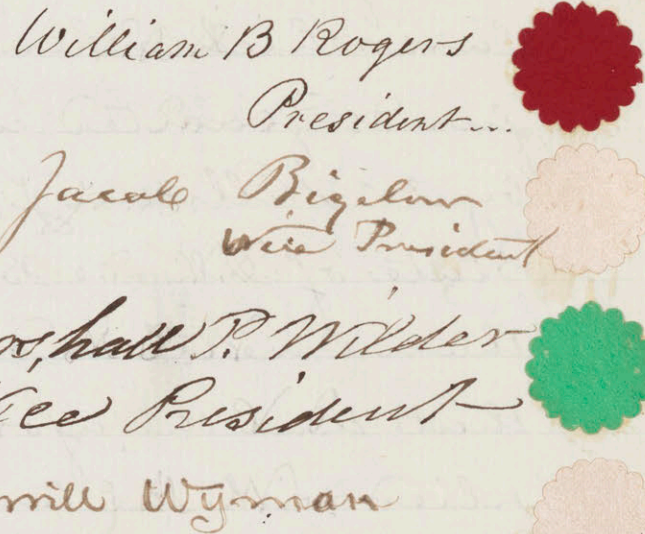 William B Rogers
President
Jacob Bigelow
Vice President
rshall P. Wilder
ice President
rrill Wyman